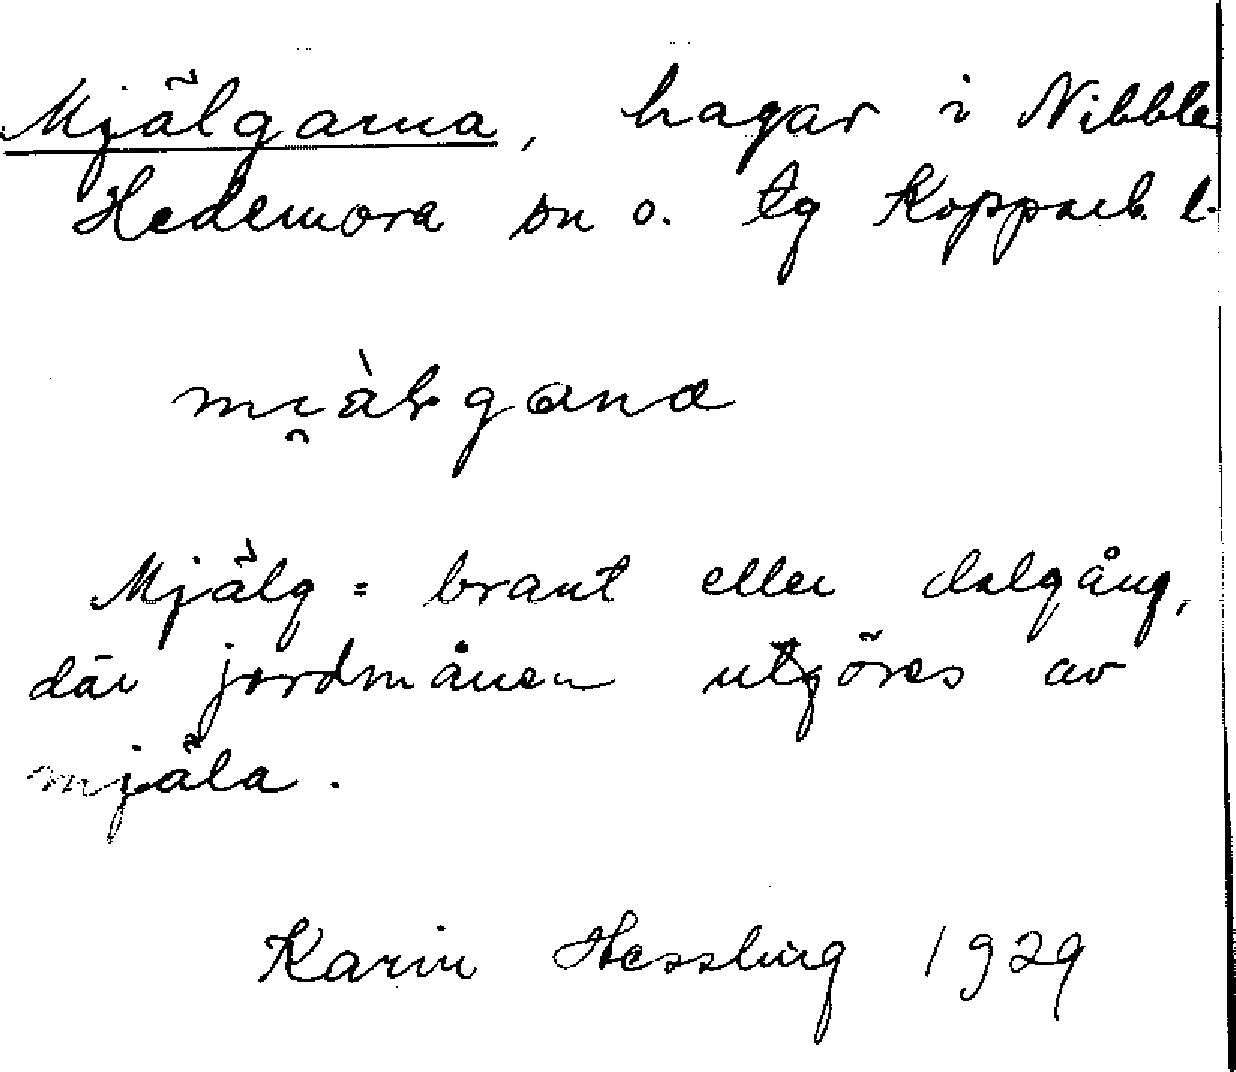 Mjälgarna, hagar i Nibble
Hedemora sn o. tg Kopparb. l.
Mjälg = brant eller dalgång,
där jordmånen utgöres av
mjäla.
Karin Hessling 1929